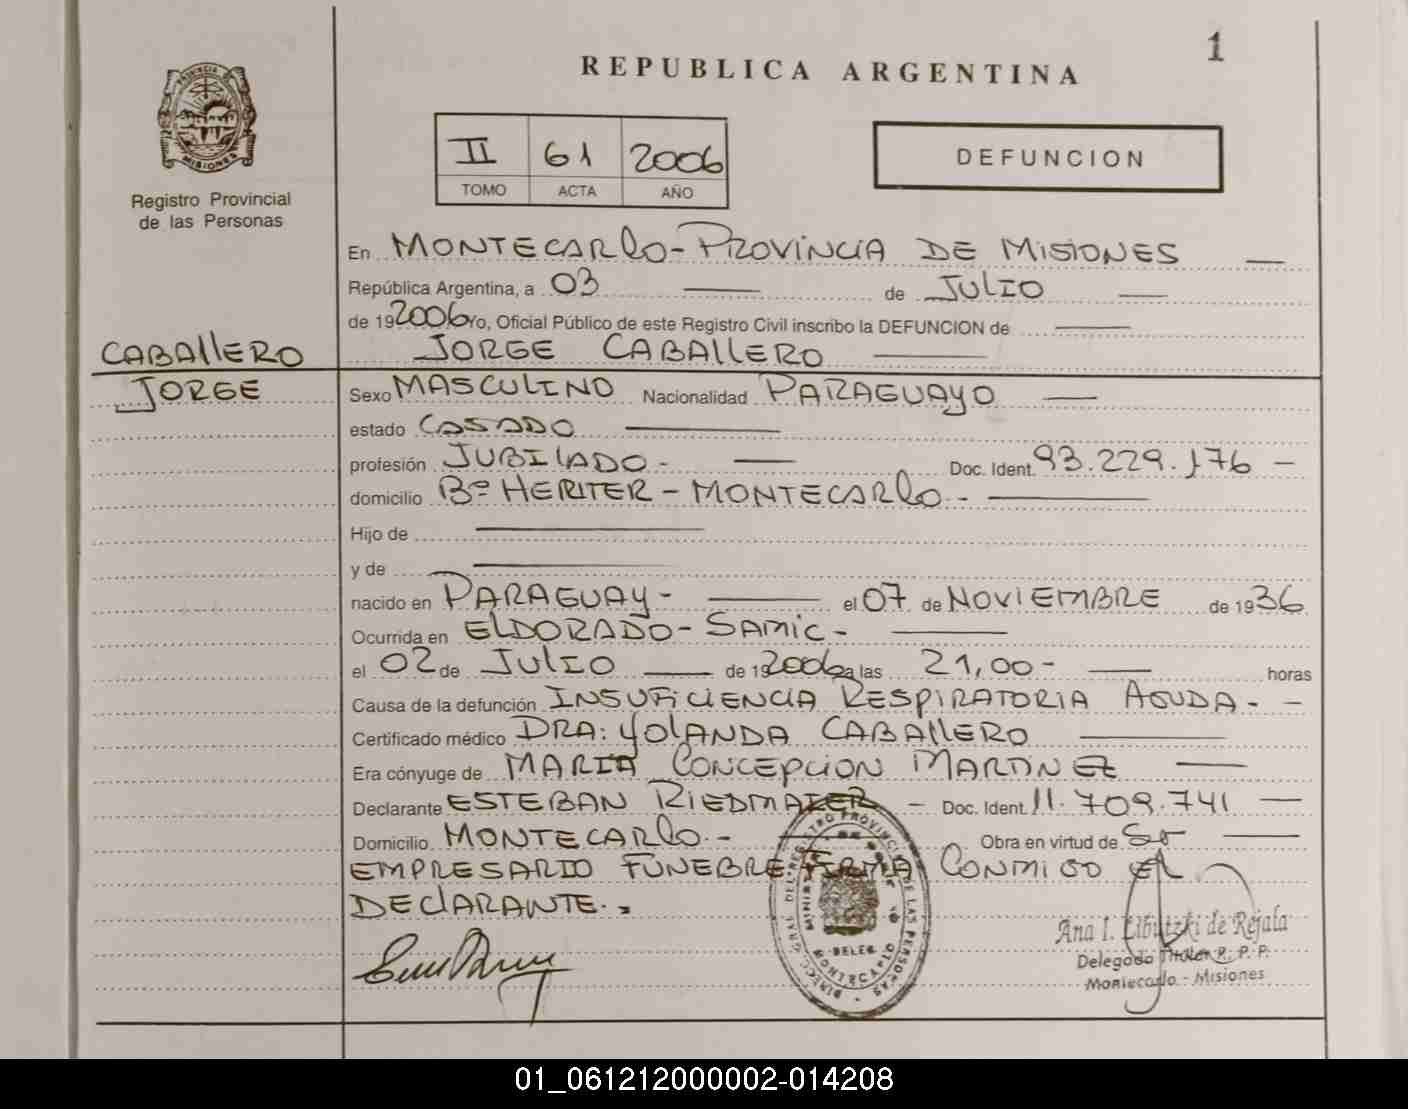 1
REPUBLICA ARGENTINA
PROVINCIA DE
MISIONES
Registro Provincial
de las Personas
II 61 2006
TOMO ACTA AÑO
DEFUNCION
En MONTECARLO - PROVINCIA DE MISIONES —
República Argentina, a 03 — de JULIO —
de 192006 Yo, Oficial Público de este Registro Civil inscribo la DEFUNCION de —
CABALLERO JORGE CABALLERO —
JORGE Sexo MASCULINO Nacionalidad PARAGUAYO —
estado CASADO —
profesión JUBILADO - — Doc. Ident. 93.229.176 -
domicilio Bº HERITER - MONTECARLO - —
Hijo de —
y de —
nacido en PARAGUAY - — el 07 de NOVIEMBRE de 1936
Ocurrida en ELDORADO - SAMIC - —
el 02 de JULIO — de 192006 a las 21,00 - — horas
Causa de la defunción INSUFICIENCIA RESPIRATORIA AGUDA - -
Certificado médico DRA: YOLANDA CABALLERO —
Era cónyuge de MARIA CONCEPCION MARTINEZ —
Declarante ESTEBAN RIEDMAIER - Doc. Ident. 11.709.741 —
Domicilio MONTECARLO - - Obra en virtud de So —
EMPRESARIO FUNEBRE FIRMA CONMIGO EL
DECLARANTE. -
DIRECC. GRAL. DEL REGISTRO PROVINCIAL DE LAS PERSONAS
DELEG.
MONTECARLO
Ana I. Libutzki de Rejala
Delegada Titular R. P. P.
Montecarlo - Misiones
01_061212000002-014208